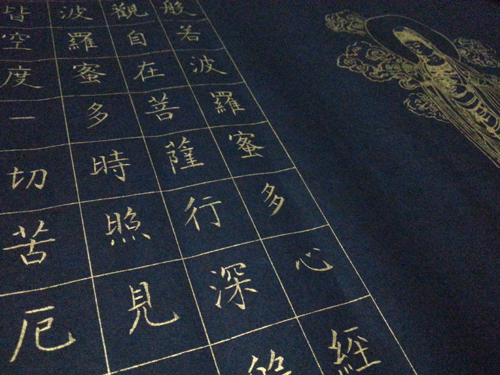 般若波羅蜜多心経
觀自在菩薩行深般
波羅蜜多時照見
皆空度一切苦厄